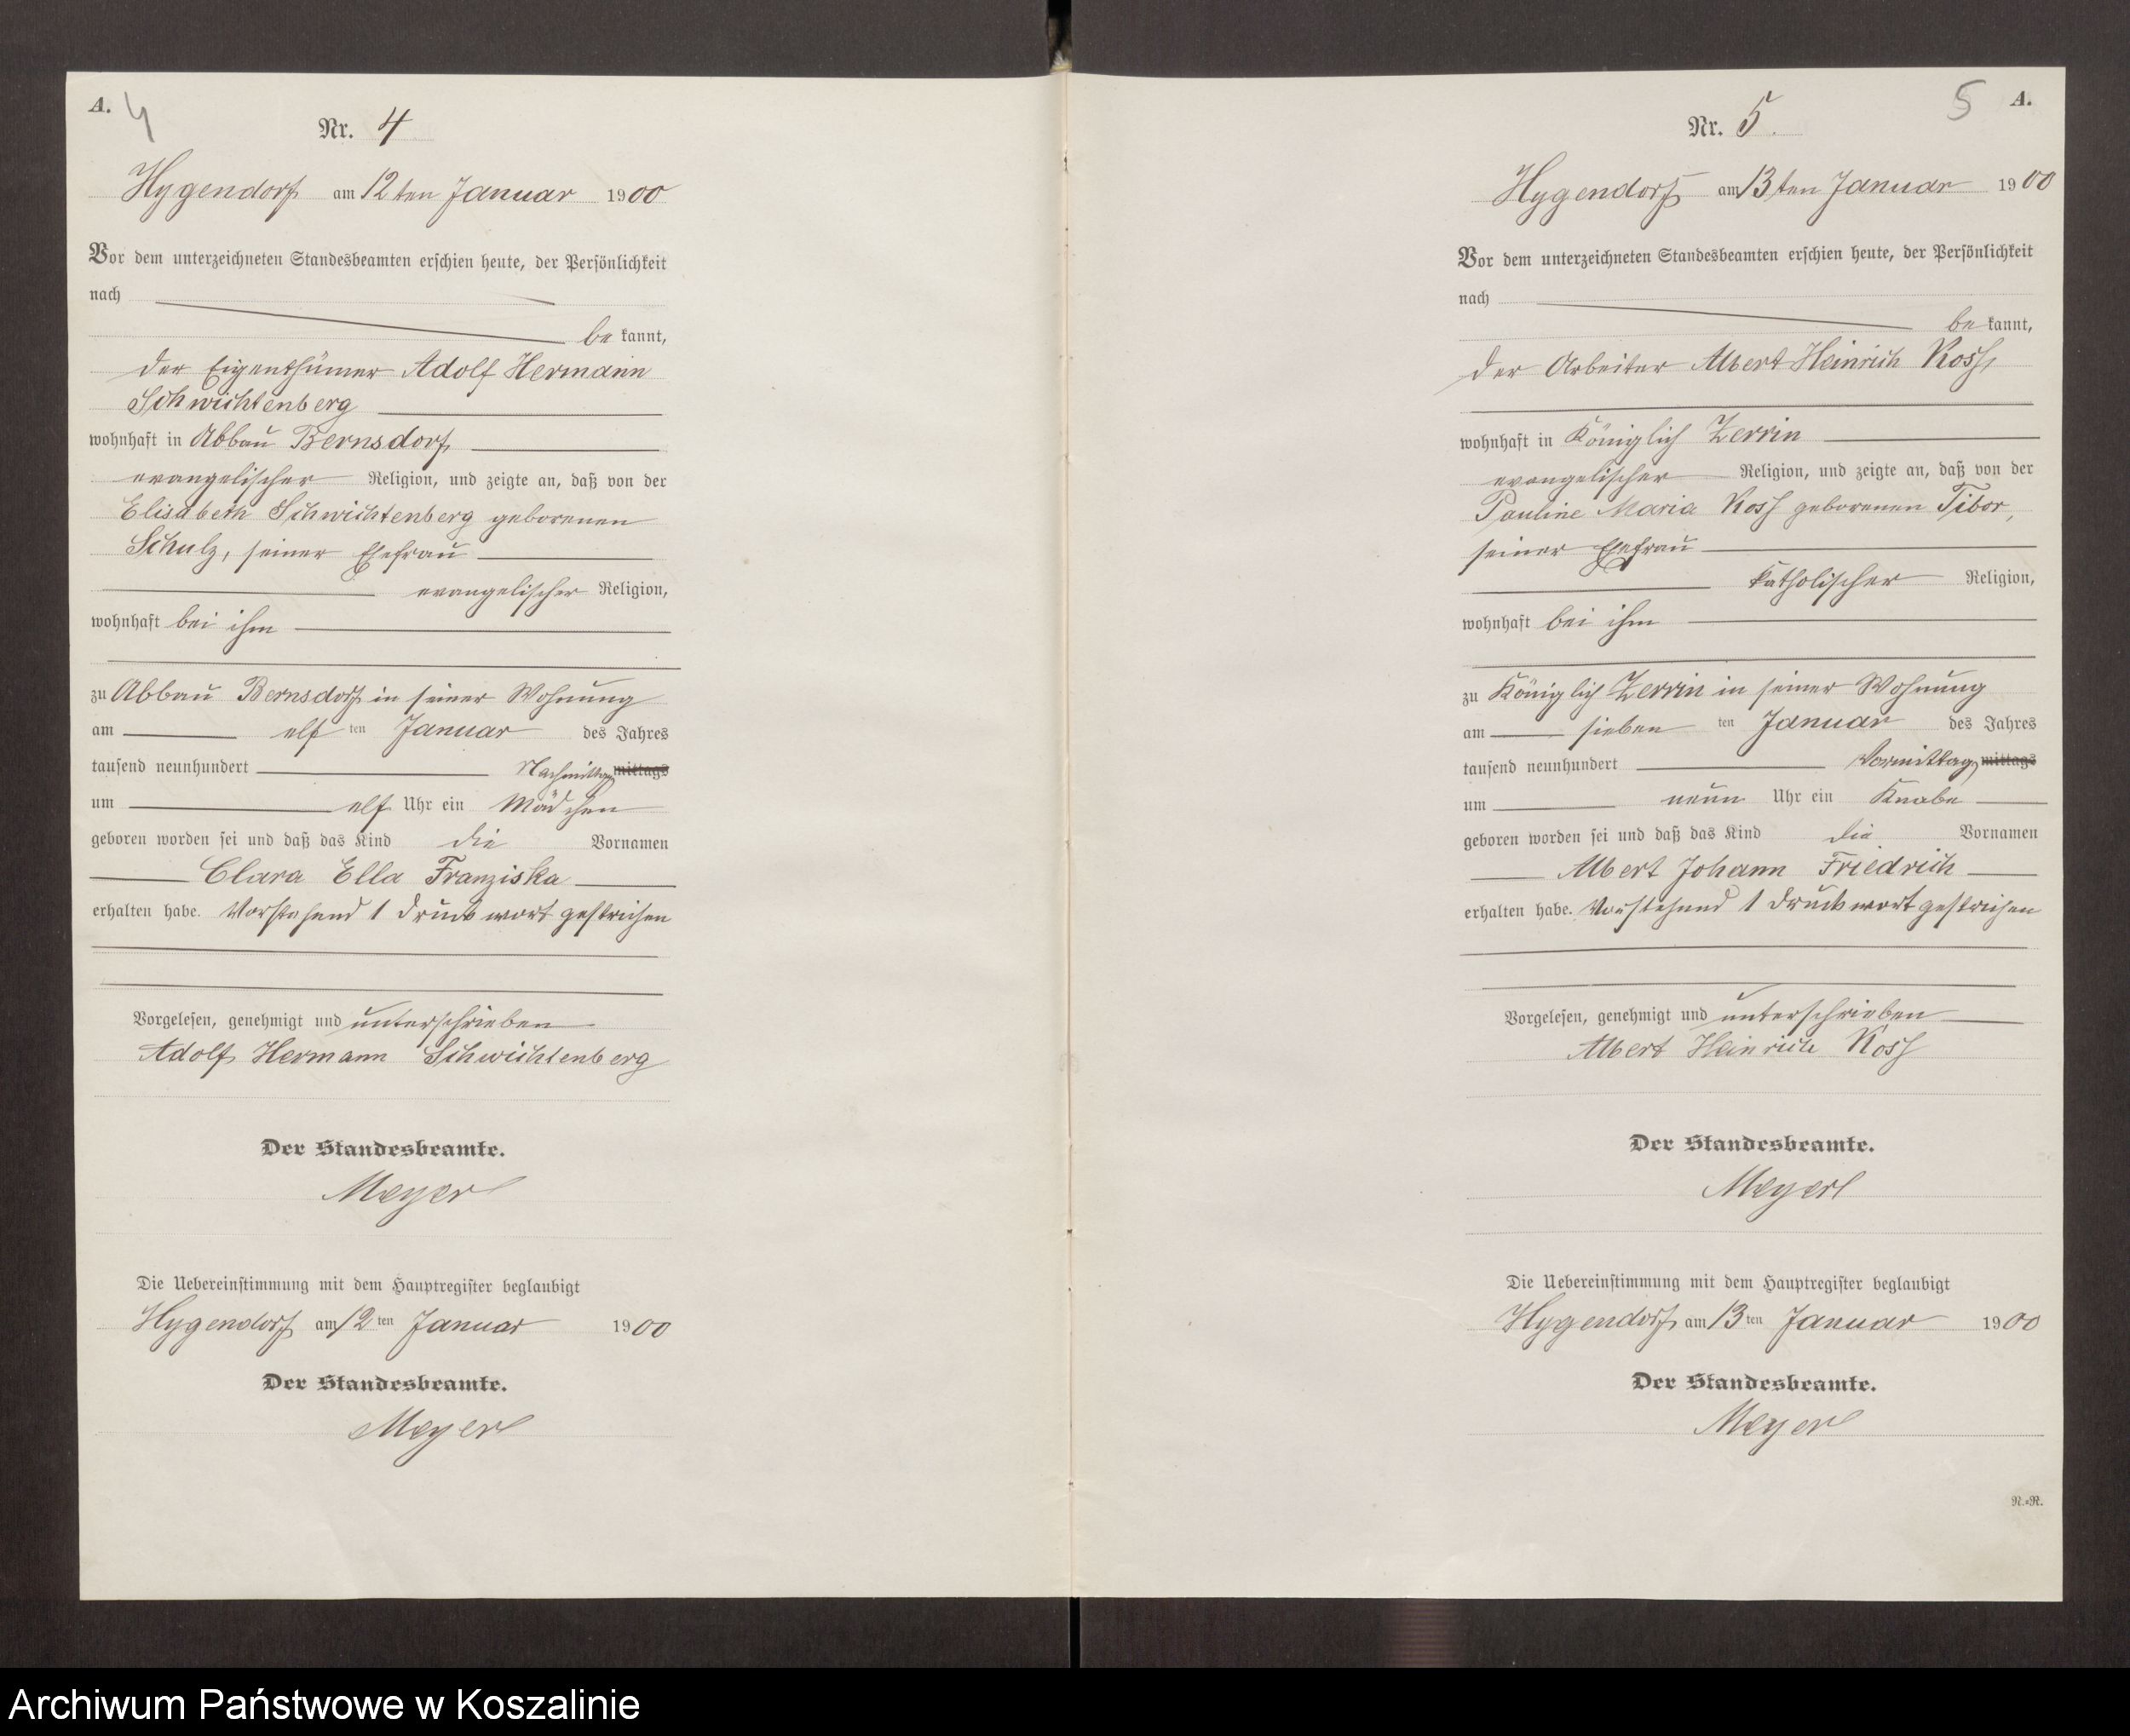 A. 4
Nr. 4
Hygendorf am 12ten Januar 1900
Vor dem unterzeichneten Standesbeamten erschien heute, der Persönlichkeit
nach
be kannt,
der Eigenthümer Adolf Hermann
Schwichtenberg
wohnhaft in Abbau Bernsdorf,
evangelischer Religion, und zeigte an, daß von der
Elisabeth Schwichtenberg geborenen
Schulz, seiner Ehefrau
evangelischer Religion,
wohnhaft bei ihm
zu Abbau Bernsdorf in seiner Wohnung
am elf ten Januar des Jahres
tausend neunhundert Nachmittags mittags
um elf Uhr ein Mädchen
geboren worden sei und daß das Kind die Vornamen
Clara Ella Franziska
erhalten habe. Vorstehend 1 Druckwort gestrichen
Vorgelesen, genehmigt und unterschrieben
Adolf Hermann Schwichtenberg
Der Standesbeamte.
Meyer
Die Uebereinstimmung mit dem Hauptregister beglaubigt
Hygendorf am 12 ten Januar 1900
Der Standesbeamte.
Meyer
5 A.
Nr. 5.
Hygendorf am 13ten Januar 1900
Vor dem unterzeichneten Standesbeamten erschien heute, der Persönlichkeit
nach
be kannt,
der Arbeiter Albert Heinrich Koss,
wohnhaft in Königlich Zerrin
evangelischer Religion, und zeigte an, daß von der
Pauline Maria Koss geborenen Tibor,
seiner Ehefrau
katholischer Religion,
wohnhaft bei ihm
zu Königlich Zerrin in seiner Wohnung
am sieben ten Januar des Jahres
tausend neunhundert Vormittags mittags
um neun Uhr ein Knabe
geboren worden sei und daß das Kind die Vornamen
Albert Johann Friedrich
erhalten habe. Vorstehend 1 Druckwort gestrichen
Vorgelesen, genehmigt und unterschrieben
Albert Heinrich Koss
Der Standesbeamte.
Meyer
Die Uebereinstimmung mit dem Hauptregister beglaubigt
Hygendorf am 13 ten Januar 1900
Der Standesbeamte.
Meyer
N.=R.
Archiwum Państwowe w Koszalinie